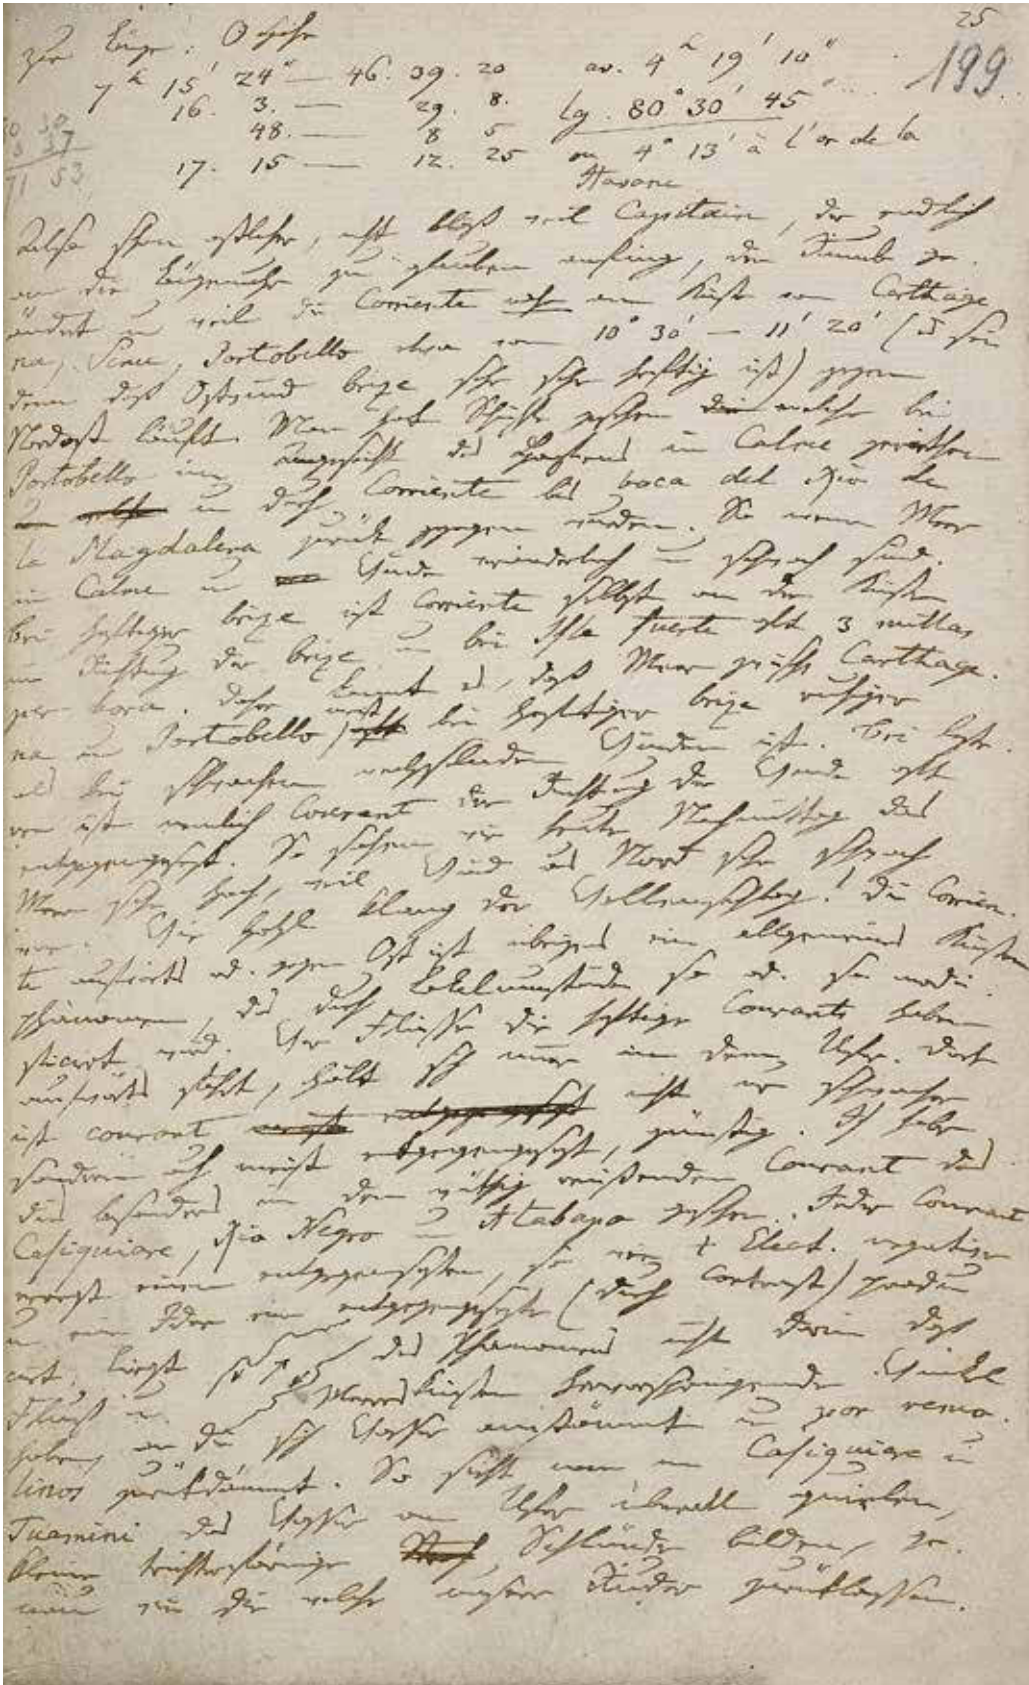 25
199
zur Länge: O Höhe
7h 15' 24" — 46. 09. 20 av. 4h 19' 10"
16. 3. — 29. 8. lg. 80° 30' 45"
48. — 8 5 ou 4° 13' à l'or de la
17. 15 — 12. 25 Havane
71 53
Also schon östlicher, nicht bloß weil Capitain, der endlich
an die Längenuhr zu glauben anfing, den Rumb ge-
ändert u weil die Corriente an Küste von Carthage
na, Portobello etwa von 10° 30' — 11° 20' (
denn daß Ostwind brize sehr sehr heftig ist) gegen
Nordost läuft. Man hat Schiffe gesehen die welche bei
Portobello im Angesicht des Hafens in Calme geriethen
u durch Corriente bis boca del Rio de
la Magdalena zurük gezogen wurden. So wenn Meer
in Calme u Winde veränderlich u schwach sind.
Bei heftiger brize ist Corriente selbst an den Küsten
in Richtung der brize u bei Isla fuerte oft 3 millas
per hora. Daher kommt es, daß Meer zwischen Carthage-
na u Portobello meist bei heftiger brize ruhiger
als bei schwachen wechselnden Winden ist. Bei lezte-
ren ist nemlich Courant der Richtung der Winde oft
entgegengesezt. So sahen wir heute Nachmittag das
Meer sehr hoch, weil Wind aus Nord sehr schwach
war. Wie hohl Klang der Wellenschlag! Die Corrien-
te aufwärts od. gegen Ost ist übrigens ein allgemeines Küsten
phänomen, das durch Lokalumstände so od. so modi-
ficirt wird. Wer Flüsse die heftige Courants haben
aufwärts fährt, hält sich immer an dem Ufer. Dort
ist courant nicht nur schwacher
sondern oft meist entgegengesezt, günstig. Ich habe
dies besonders in dem mächtig reißenden Courant des
Casiquiare, Rio Negro u Atabapo gesehen. Jeder Courant
erregt einen entgegengesezten, so wie + Elect. negative
u eine Idee eine entgegengesezte (durch Contrast) produ
cirt. Liegt des Phänomens nicht darin daß
Fluß u Meeresküsten hervorspringende Winkel
haben, an die sich Wasser anstämmt u zwar remo-
linos zurükdämmt. So sieht man im Casiquiare u
Tuamini das Wasser am Ufer überall quirlen,
kleine trichterförmige Schlünde bilden, ge-
nau wie die welche unsere Ruder zurüklassen.